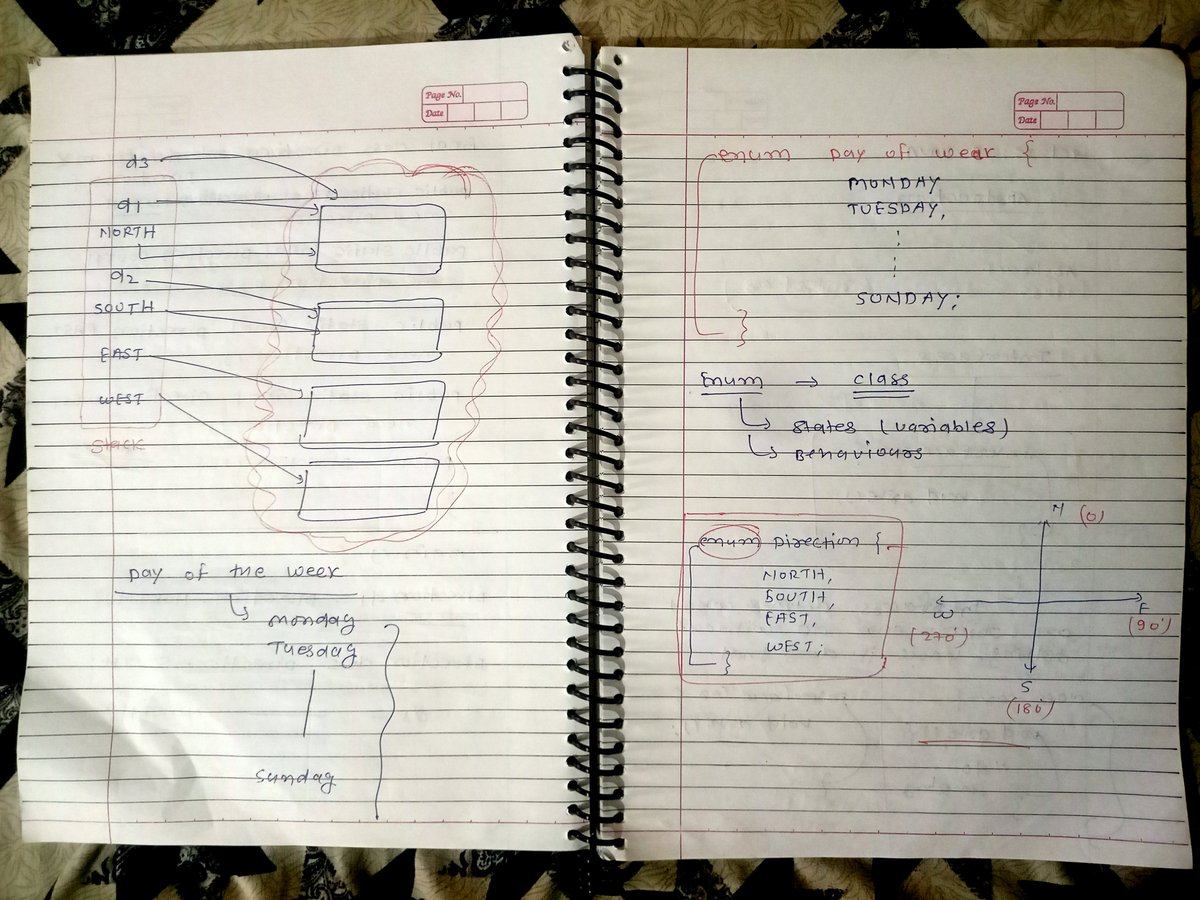 Page No.
Date
d3
d1
NORTH
d2
SOUTH
EAST
WEST
Stack
Day of the week
Monday
Tuesday
Sunday
Page No.
Date
enum Day of weak {
MONDAY
TUESDAY,
SUNDAY;
}
Enum → class
States (variables)
Behaviours
enum Direction {
NORTH,
SOUTH,
EAST,
WEST;
}
N (0)
W
E
(270°)
(90°)
S
(180°)